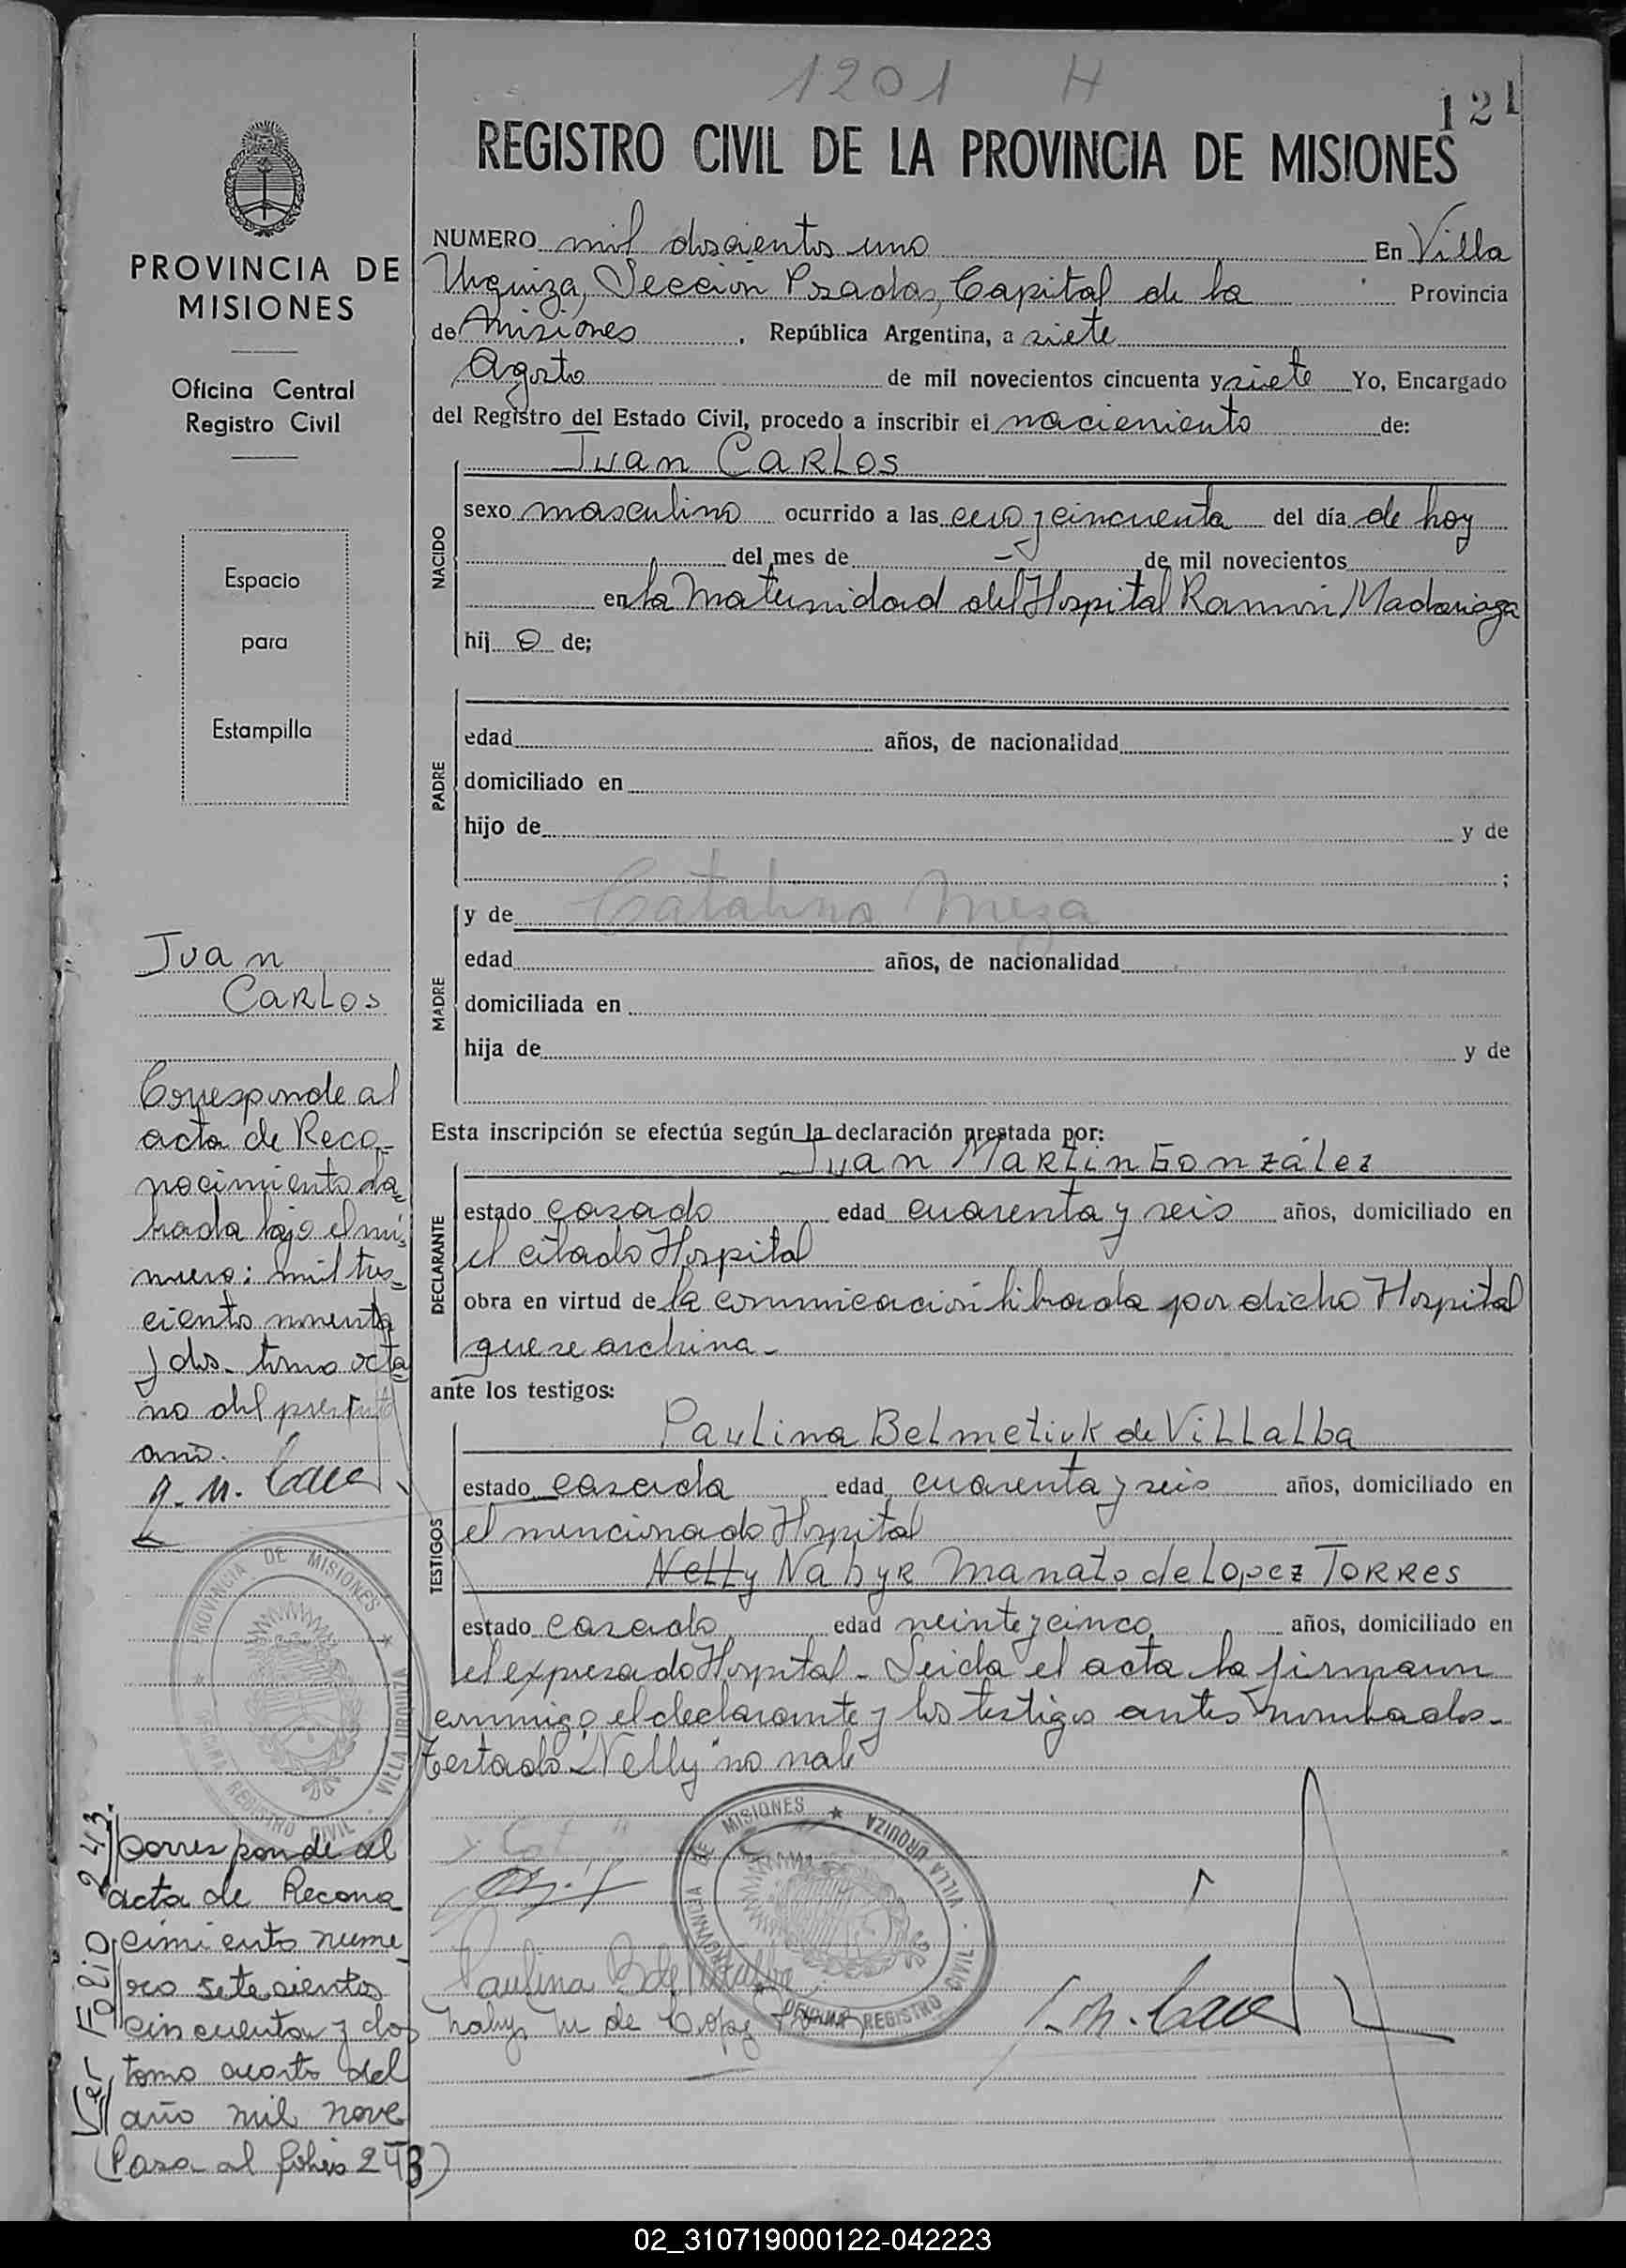 1201 H
121
REGISTRO CIVIL DE LA PROVINCIA DE MISIONES
PROVINCIA DE
MISIONES
Oficina Central
Registro Civil
Espacio
para
Estampilla
NUMERO mil doscientos uno En Villa
Urquiza, Sección Posadas, Capital de la Provincia
de Misiones, República Argentina, a siete
Agosto de mil novecientos cincuenta y siete Yo, Encargado
del Registro del Estado Civil, procedo a inscribir el nacimiento de:
NACIDO
Juan CARLOS
sexo masculino ocurrido a las cero y cincuenta del día de hoy
del mes de - de mil novecientos
en la Maternidad del Hospital Ramón Madariaga
hij o de;
PADRE
edad años, de nacionalidad
domiciliado en
hijo de y de
;
MADRE
y de Catalina Meza
edad años, de nacionalidad
domiciliada en
hija de y de
Esta inscripción se efectúa según la declaración prestada por:
DECLARANTE
Juan Martin González
estado casado edad cuarenta y seis años, domiciliado en
el citado Hospital
obra en virtud de la comunicación librada por dicho Hospital
que se archiva.-
ante los testigos:
TESTIGOS
Paulina Belmetiuk de Villalba
estado casada edad cuarenta y seis años, domiciliado en
el mencionado Hospital
Nelly Nabyr Manato de Lopez Torres
estado casada edad veinte y cinco años, domiciliado en
el expresado Hospital - Leida el acta la firmaron
conmigo, el declarante y los testigos antes nombrados.-
Testado "Nelly" no vale
Paulina B de Villalba
Naby M de Lopez Torres
PROVINCIA DE MISIONES ★ VILLA URQUIZA · OFICINA REGISTRO CIVIL
Juan
Carlos
Corresponde al
acta de Reco-
nocimiento la-
brada bajo el nú-
mero: mil tres-
ciento noventa
y dos- tomo octa-
vo del presente
año.
PROVINCIA DE MISIONES ★ VILLA URQUIZA · OFICINA REGISTRO CIVIL
Corresponde al
acta de Recono
cimiento nume
ro setesientos
cincuenta y dos
tomo cuarto del
año mil nove
(Pasa al folio 243)
Ver Folio 243.
02_310719000122-042223